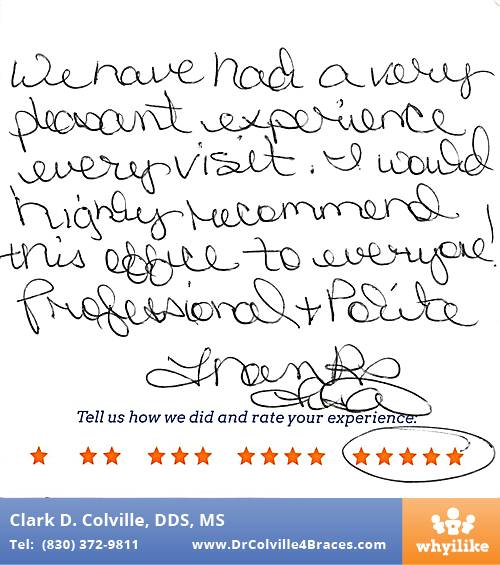 We have had a very
pleasant experience
every visit. I would
highly recommend
this office to everyone!
Professional + Polite
Thanks
Tell us how we did and rate your experience:
Clark D. Colville, DDS, MS
Tel: (830) 372-9811 www.DrColville4Braces.com
whyilike